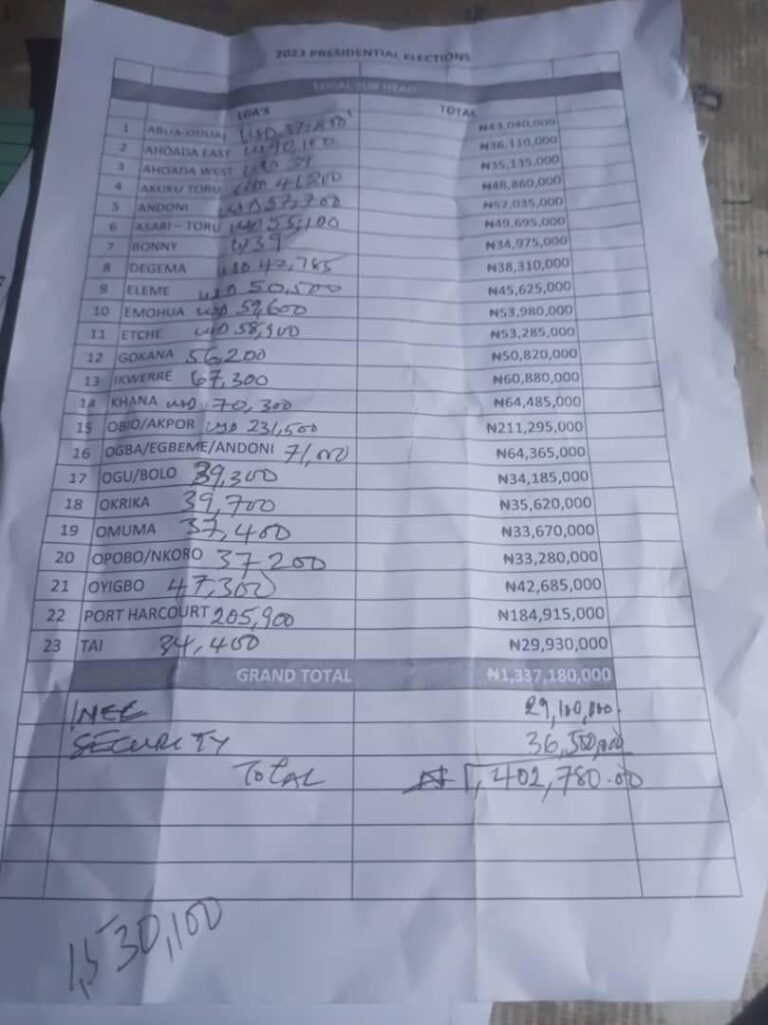 2023 PRESIDENTIAL ELECTIONS
LOCAL SUB HEAD
LGA'S TOTAL
1 ABUA-ODUAL USD ₦43,040,000
2 AHOADA EAST ₦36,110,000
3 AHOADA WEST ₦35,135,000
4 AKUKU TORU 41,200 ₦48,860,000
5 ANDONI USD 57,200 ₦52,035,000
6 ASARI-TORU USD 55,100 ₦49,695,000
7 BONNY 39 ₦34,975,000
8 DEGEMA USD 42,785 ₦38,310,000
9 ELEME USD 50,500 ₦45,625,000
10 EMOHUA USD 59,600 ₦53,980,000
11 ETCHE USD 58,900 ₦53,285,000
12 GOKANA 56,200 ₦50,820,000
13 IKWERRE 67,300 ₦60,880,000
14 KHANA USD 70,300 ₦64,485,000
15 OBIO/AKPOR USD 231,500 ₦211,295,000
16 OGBA/EGBEME/ANDONI 71,000 ₦64,365,000
17 OGU/BOLO 39,300 ₦34,185,000
18 OKRIKA 39,700 ₦35,620,000
19 OMUMA 37,400 ₦33,670,000
20 OPOBO/NKORO 37,200 ₦33,280,000
21 OYIGBO 47,300 ₦42,685,000
22 PORT HARCOURT 205,900 ₦184,915,000
23 TAI 34,400 ₦29,930,000
GRAND TOTAL ₦1,337,180,000
INEC 29,100,000.
SECURITY 36,500,000
TOTAL ₦1,402,780.00
1,530,100